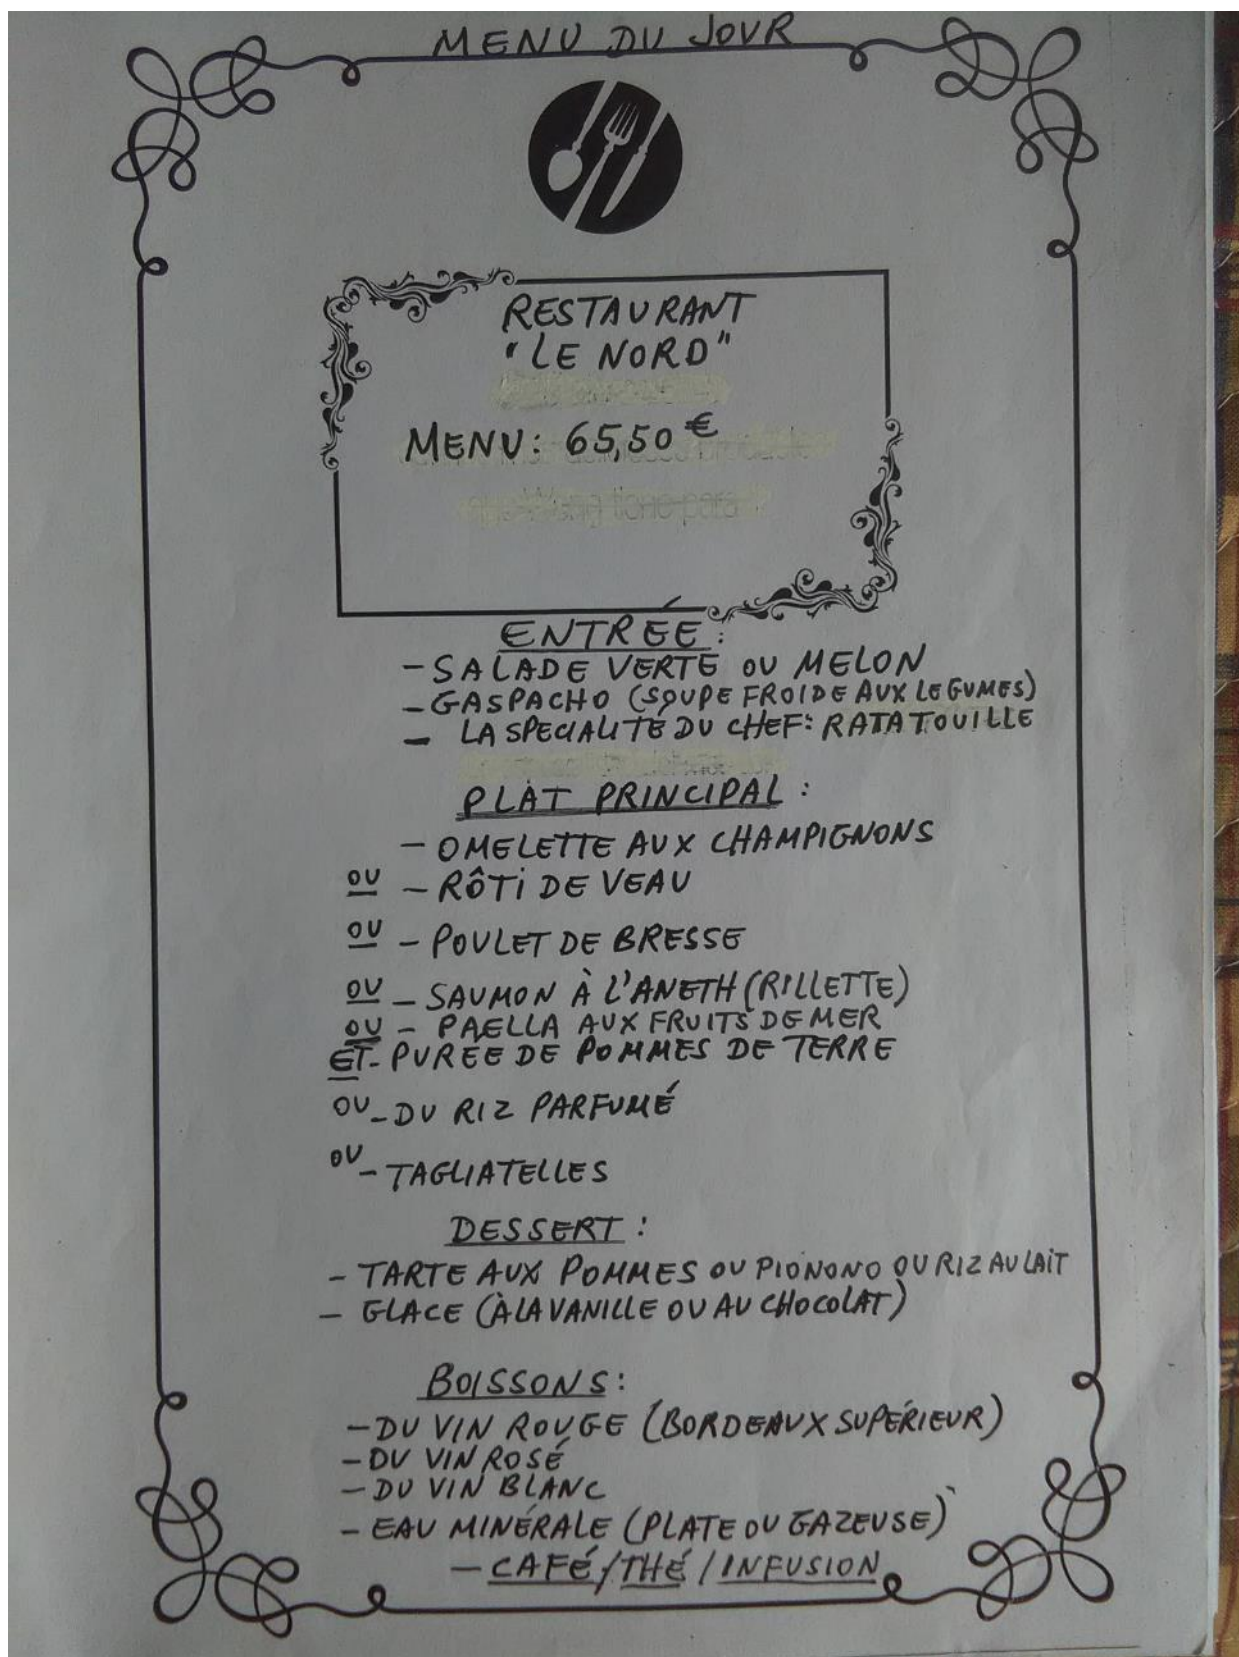 MENU DU JOUR
RESTAURANT
"LE NORD"
MENU: 65,50 €
ENTRÉE:
- SALADE VERTE OU MELON
- GASPACHO (SOUPE FROIDE AUX LEGUMES)
- LA SPECIALITÉ DU CHEF: RATATOUILLE
PLAT PRINCIPAL:
- OMELETTE AUX CHAMPIGNONS
OU - RÔTI DE VEAU
OU - POULET DE BRESSE
OU - SAUMON À L'ANETH (RILLETTE)
OU - PAELLA AUX FRUITS DE MER
ET - PURÉE DE POMMES DE TERRE
OU - DU RIZ PARFUMÉ
OU - TAGLIATELLES
DESSERT:
- TARTE AUX POMMES OU PIONONO OU RIZ AU LAIT
- GLACE (À LA VANILLE OU AU CHOCOLAT)
BOISSONS:
- DU VIN ROUGE (BORDEAUX SUPÉRIEUR)
- DU VIN ROSÉ
- DU VIN BLANC
- EAU MINÉRALE (PLATE OU GAZEUSE)
- CAFÉ / THÉ / INFUSION